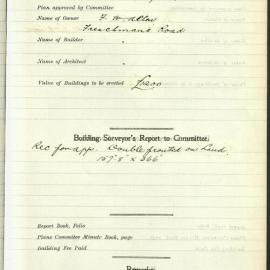 Plan approved by Committee
Name of Owner F. W. Allen
Frenchmans Road
Name of Builder "
Name of Architect "
Value of Buildings to be erected £200
Building Surveyor's Report to Committee.
Rec for app. Double fronted on Land.
157'8" x 266'
Report Book, Folio
Plans Committee Minute Book, page
Building Fee Paid
Remarks